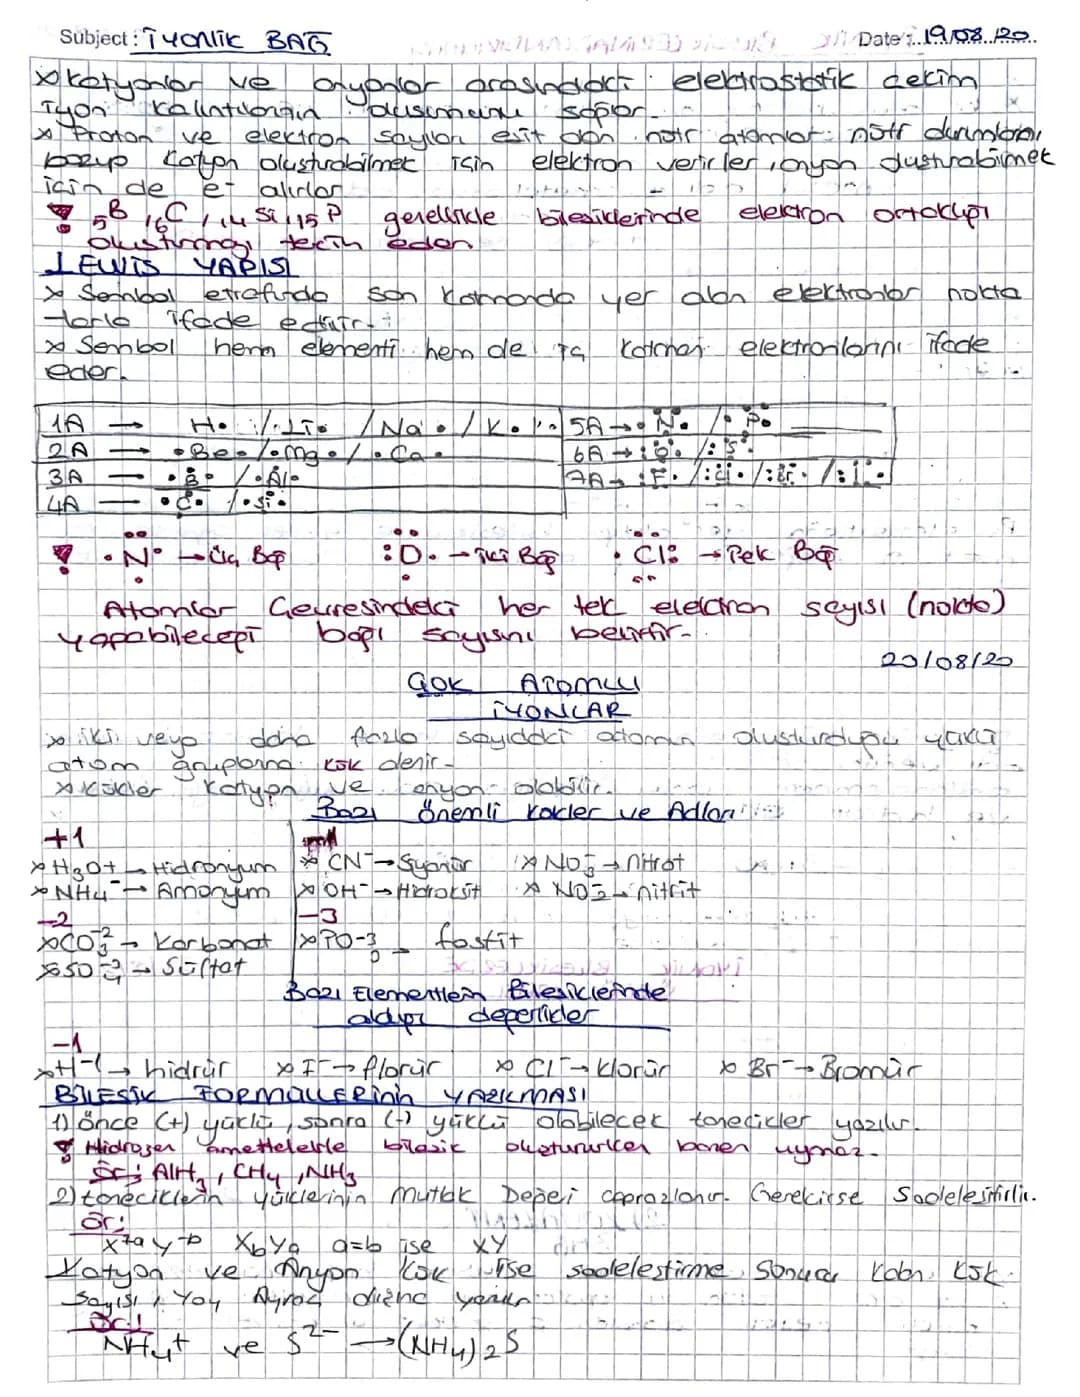 Subject: İYONİK BAĞ Date: 19/08/20
x Katyonlar ve anyonlar arasındaki elektrostatik çekim
iyon kalıntılarının oluşumunu sağlar.
x Proton ve elektron sayıları eşit olan nötr atomlar nötr durumlarını
bozup katyon oluşturabilmek için elektron vericiler, anyon oluşturabilmek
için de e- alırlar
! 5B, 6C, 14Si, 15P genellikle bileşiklerinde elektron ortaklığı
oluşturmayı tercih eden
LEWİS YAPISI
x Sembol etrafında son katmanda yer alan elektronlar nokta
-larla ifade edilir.
x Sembol hem elementi hem de iç katman elektronlarını ifade
eder.
1A → H· / Li· / Na· / K· 5A → N / P
2A → ·Be· / ·Mg· / ·Ca· 6A → O / S
3A → B / Al 7A → F / Cl / Br / I
4A → C / Si
! N → Üç Bağ :O. → iki Bağ Cl: → Tek Bağ
Atomlar Çevresindeki her tek elektron sayısı (nokta)
yapabileceği bağı sayısını belirtir.
20/08/20
ÇOK ATOMLU
İYONLAR
x iki veya daha fazla sayıdaki atomun oluşturduğu yüklü
atom gruplarına kök denir.
x Kökler katyon ve anyon olabilir.
Bazı Önemli Kökler ve Adları
+1
x H3O+ → Hidronyum x CN- → Siyanür x NO3- → nitrat
x NH4- → Amonyum x OH- → Hidroksit x NO2- → nitrit
-2 -3
x CO3-2 → Karbonat x PO-3 3 → fosfit
x SO4-2 → Sülfat
Bazı Elementlein Bileşiklerinde
aldığı değerlikler
-1
x H-1 → hidrür x F- → florür x Cl- → klorür x Br- → Bromür
BİLEŞİK FORMÜLLERİnin YAZILMASI
1) önce (+) yüklü, sonra (-) yüklü olabilecek tanecikler yazılır.
! Hidrojen ametallerle bileşik oluştururken bazen uymaz.
Ör: AlH3, CH4, NH3
2) taneciklerin yüklerinin Mutlak Değeri çaprazlanır. Gerekirse Sadeleştirilir.
Ör:
X+a Y-b XbYa a=b ise XY
Katyon ve Anyon Kök ise sadeleştirme Sonucu kalan kök
sayısı, Yay Ayraç dışına yazılır
Ör:
NH4+ ve S2- → (NH4)2S